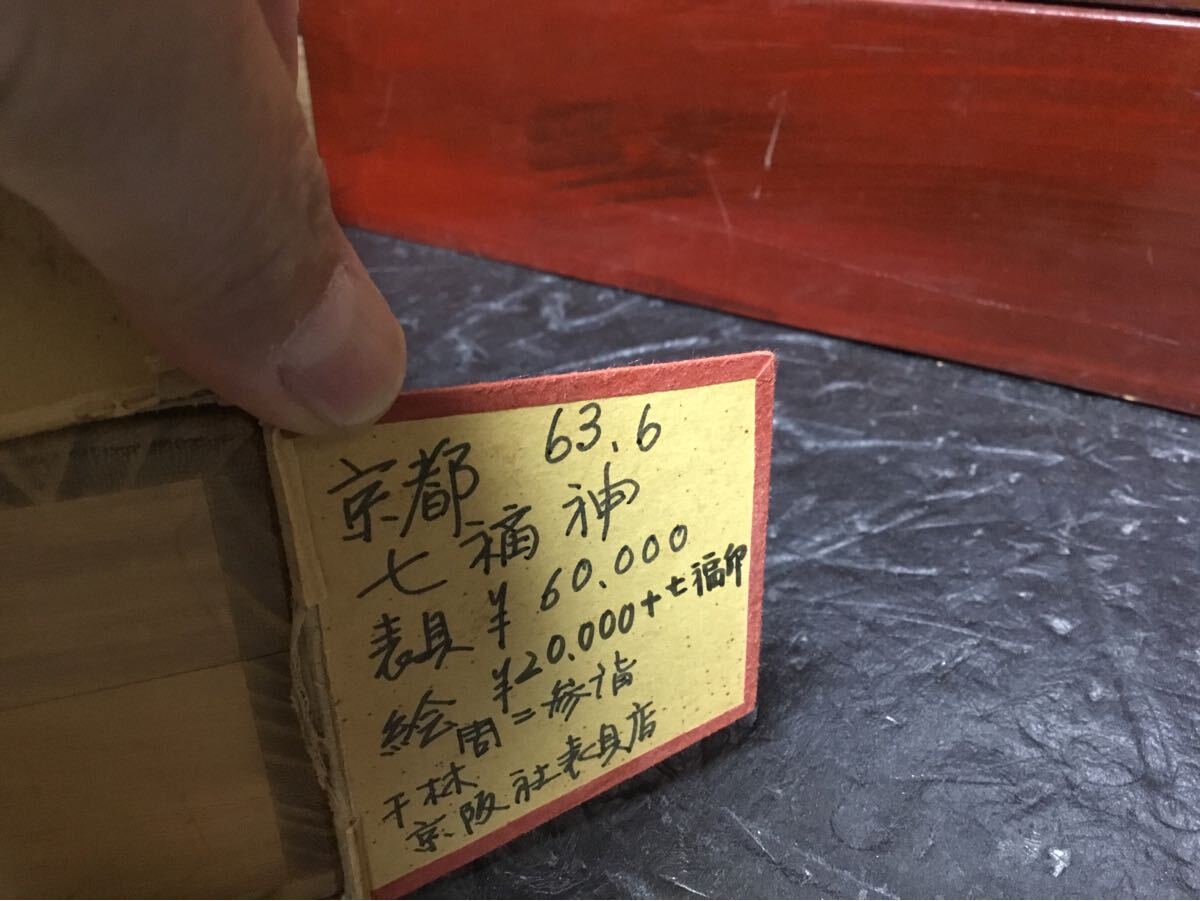 京都 63.6
七福神
表具 ¥60.000
絵 ¥20.000+七福印
周二参詣
千林
京阪社表具店